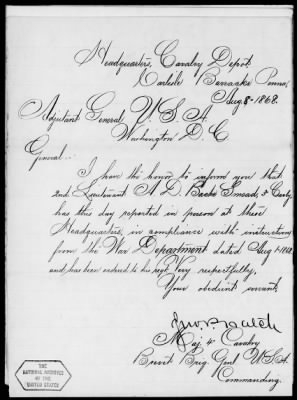 Headquarters, Cavalry Depot.
Carlisle Barracks Penna,
Aug. 8- 1868.
Adjutant General U. S. A.
Washington D. C
General:
I have the honor to inform you that
2nd Lieutenant A D. Bache Smead, 3 Cavly,
has this day reported in person at these
Headquarters, in compliance with instructions
from the War Department dated Aug 1-1868.
and has been ordered to his regt. Very respectfully,
Your obedient servant,
Jno. P. Hatch
Maj 4" Cavalry
Brevt Brig. Genl U.S.A
Commanding.
THE
NATIONAL ARCHIVES
OF THE
UNITED STATES